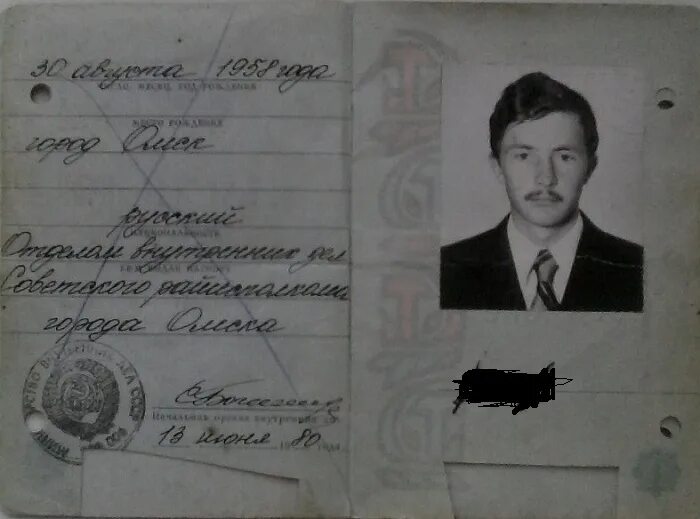 30 августа 1958 года
ЧИСЛО, МЕСЯЦ, ГОД РОЖДЕНИЯ
МЕСТО РОЖДЕНИЯ
город Омск
русский
НАЦИОНАЛЬНОСТЬ
Отделом внутренних дел
Советского райисполкома
города Омска
Начальник органа внутренних дел
13 июня 1980 года